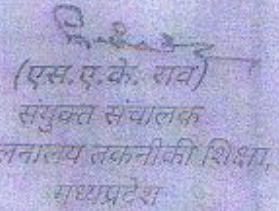 (एस.ए.के. राव)
संयुक्त संचालक
लनालय तकनीकी शिक्षा,
मध्यप्रदेश